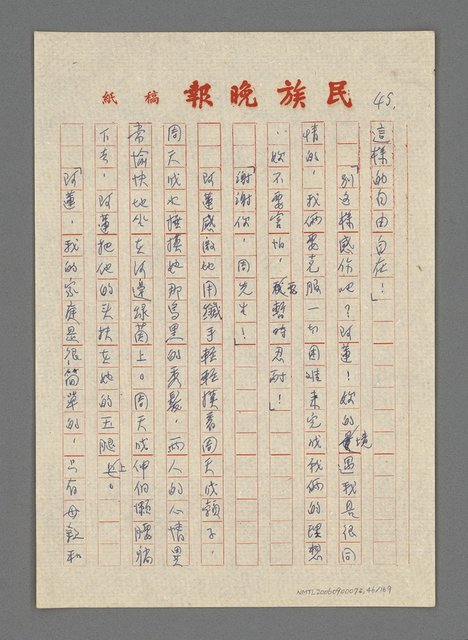 民族晚報 稿紙
45.
這樣的自由自在！」
「別這樣感伤吧？阿蓮！妳的境遇我是很同
情的，我俩要克服一切困难来完成我俩的理想
，妳不要害怕，要暫時忍耐！」
「謝謝你，周先生！」
阿蓮感激地用纖手輕輕摸着周天成顏子，
周天成也撫摸她那烏黑的秀髮，兩人的心情異
常愉快地坐在河邊綠茵上。周天成伸伸懶腰躺
下去，阿蓮把他的头扶在她的玉腿上。
「阿蓮，我的家庭是很簡單的，只有母親和
NMTL20060900072,46/169